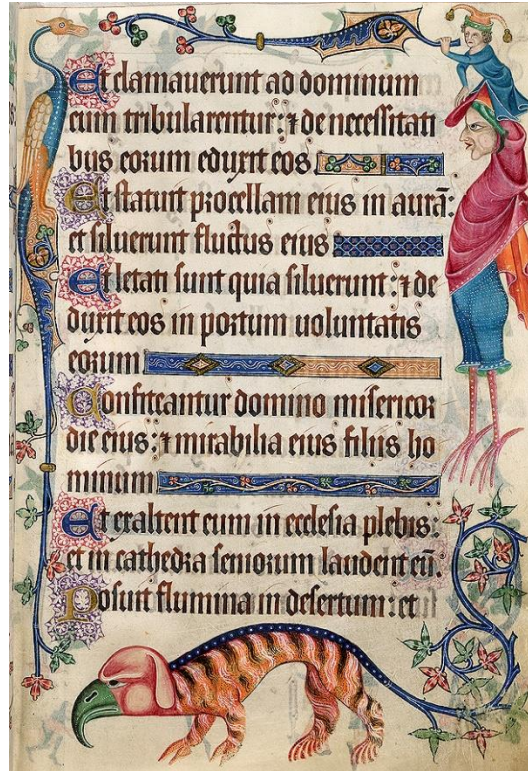 Et clamauerunt ad dominum
cum tribularentur: ⁊ de necessitati
bus eorum eduxit eos
Et statuit procellam eius in aurā:
et siluerunt fluctus eius
Et letati sunt quia siluerunt: ⁊ de
duxit eos in portum uoluntatis
eorum
Confiteantur domino misericor
die eius: ⁊ mirabilia eius filiis ho
minum
Et exaltent eum in ecclesia plebis:
et in cathedra seniorum laudent eū.
Posuit flumina in desertum: et